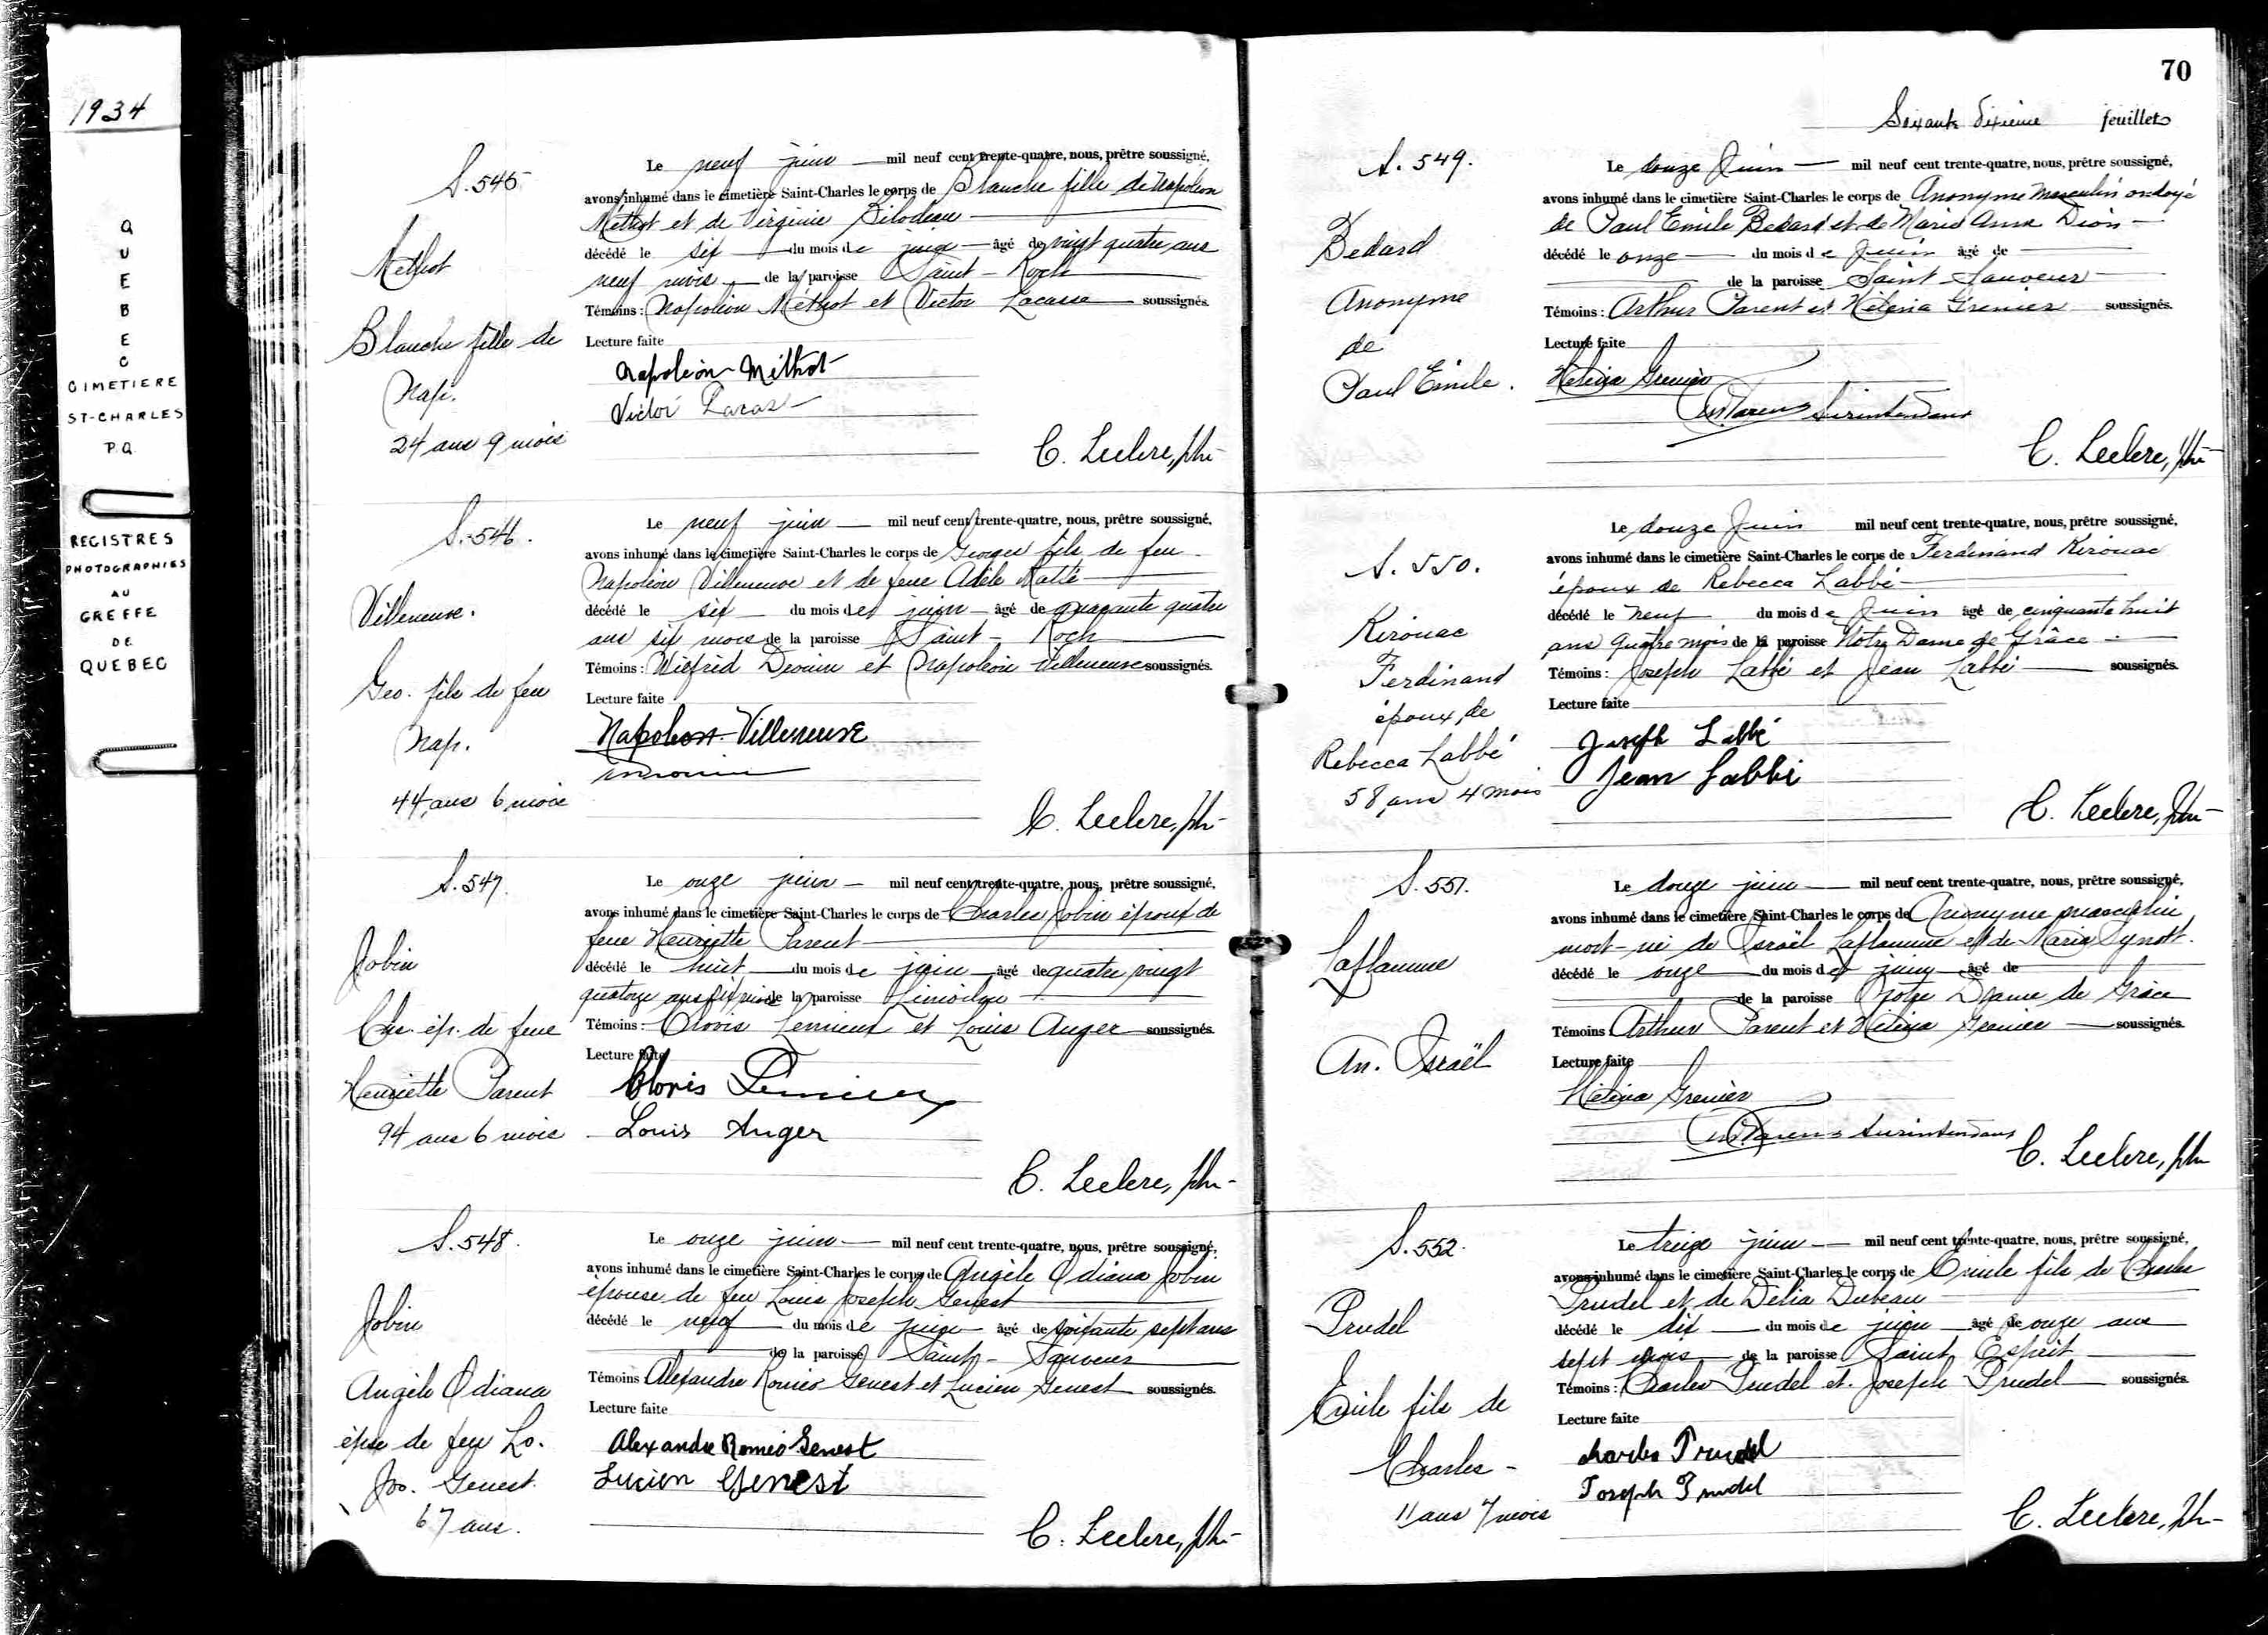 1934
QUEBEC
CIMETIERE
ST-CHARLES
P.Q.
REGISTRES
PHOTOGRAPHIES
AU
GREFFE
DE
QUEBEC
S. 545
Methot
Blanche fille de
Nap.
24 ans 9 mois
Le neuf juin mil neuf cent trente-quatre, nous, prêtre soussigné,
avons inhumé dans le cimetière Saint-Charles le corps de Blanche fille de Napoléon
Méthot et de Virginie Bilodeau
décédé le six du mois de juin âgé de vingt quatre ans
neuf mois de la paroisse Saint-Roch
Témoins: Napoléon Méthot et Victor Lacasse soussignés.
Lecture faite
Napoléon Méthot
Victor
C. Leclerc, ptr
S. 546.
Villeneuve.
Geo. fils de feu
Nap.
44 ans 6 mois
Le neuf juin mil neuf cent trente-quatre, nous, prêtre soussigné,
avons inhumé dans le cimetière Saint-Charles le corps de Georges fils de feu
Napoléon Villeneuve et de feue Adèle Matte
décédé le six du mois de juin âgé de quarante quatre
ans six mois de la paroisse Saint-Roch
Témoins: Wilfrid Drouin et Napoléon Villeneuve soussignés.
Lecture faite
Napoleon Villeneuve
C. Leclerc, ptr
S. 547.
Jobin
Chs. ép. de feue
Henriette Parent
94 ans 6 mois
Le onze juin mil neuf cent trente-quatre, nous, prêtre soussigné,
avons inhumé dans le cimetière Saint-Charles le corps de Charles Jobin époux de
feue Henriette Parent
décédé le huit du mois de juin âgé de quatre vingt
quatorze ans six mois de la paroisse Limoilou
Témoins: Clovis Lemieux et Louis Auger soussignés.
Lecture faite
Clovis Lemieux
Louis Auger
C. Leclerc, ptr
S. 548.
Jobin
Angèle Odiana
épse de feu Ls.
Jos. Genest.
67 ans.
Le onze juin mil neuf cent trente-quatre, nous, prêtre soussigné,
avons inhumé dans le cimetière Saint-Charles le corps de Angèle Odiana Jobin
épouse de feu Louis Joseph Genest
décédé le neuf du mois de juin âgé de soixante sept ans
de la paroisse Saint-Sauveur
Témoins Alexandre Roméo Genest et Lucien Genest soussignés.
Lecture faite
Alexandre Roméo Genest
Lucien Genest
C. Leclerc, ptr
70
Soixante dixième feuillets
S. 549.
Bedard
Anonyme
de
Paul Emile.
Le douze Juin mil neuf cent trente-quatre, nous, prêtre soussigné,
avons inhumé dans le cimetière Saint-Charles le corps de Anonyme Masculin ondoyé
de Paul Emile Bedard et de Marie Anna Dion
décédé le onze du mois de Juin âgé de
de la paroisse Saint Sauveur
Témoins: Arthur Parent et Hélèna Grenier soussignés.
Lecture faite
Hélèna Grenier
Parent Surintendant
C. Leclerc, ptr
S. 550.
Kirouac
Ferdinand
époux de
Rebecca Labbé
58 ans 4 mois
Le douze Juin mil neuf cent trente-quatre, nous, prêtre soussigné,
avons inhumé dans le cimetière Saint-Charles le corps de Ferdinand Kirouac
époux de Rebecca Labbé
décédé le neuf du mois de Juin âgé de cinquante huit
ans quatre mois de la paroisse Notre Dame de Grâce
Témoins: Joseph Labbé et Jean Labbé soussignés.
Lecture faite
Joseph Labbé
Jean Labbé
C. Leclerc, ptr
S. 551.
Laflamme
An. Israël
Le douze juin mil neuf cent trente-quatre, nous, prêtre soussigné,
avons inhumé dans le cimetière Saint-Charles le corps de Anonyme masculin
mort-né de Israël Laflamme et de Maria Synott.
décédé le onze du mois de juin âgé de
de la paroisse Notre Dame de Grâce
Témoins Arthur Parent et Hélèna Grenier soussignés.
Lecture faite
Hélèna Grenier
Parent Surintendant
C. Leclerc, ptr
S. 552.
Prudel
Emile fils de
Charles
11 ans 7 mois
Le treize juin mil neuf cent trente-quatre, nous, prêtre soussigné,
avons inhumé dans le cimetière Saint-Charles le corps de Emile fils de Charles
Prudel et de Delia Dubeau
décédé le dix du mois de juin âgé de onze ans
sept mois de la paroisse Saint Esprit
Témoins: Charles Prudel et Joseph Prudel soussignés.
Lecture faite
Charles Prudel
Joseph Prudel
C. Leclerc, ptr